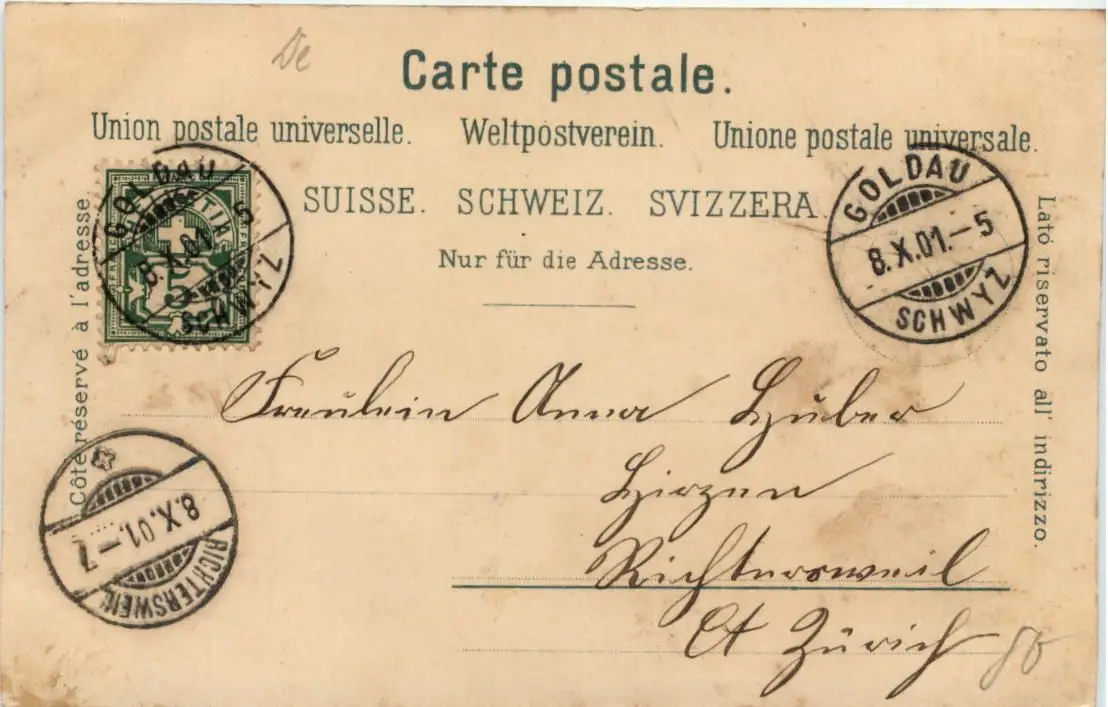 De
Carte postale.
Union postale universelle. Weltpostverein. Unione postale universale.
SUISSE. SCHWEIZ. SVIZZERA.
Nur für die Adresse.
Côté réservé à l'adresse.
Lato riservato all' indirizzo.
GOLDAU
8.X.01.-5
SCHWYZ
GOLDAU
8.X.01.-5
SCHWYZ
Fräulein Anna Huber
Hirzen
Richtersweil
Ct Zürich
8.X.01.-7
RICHTERSWEIL